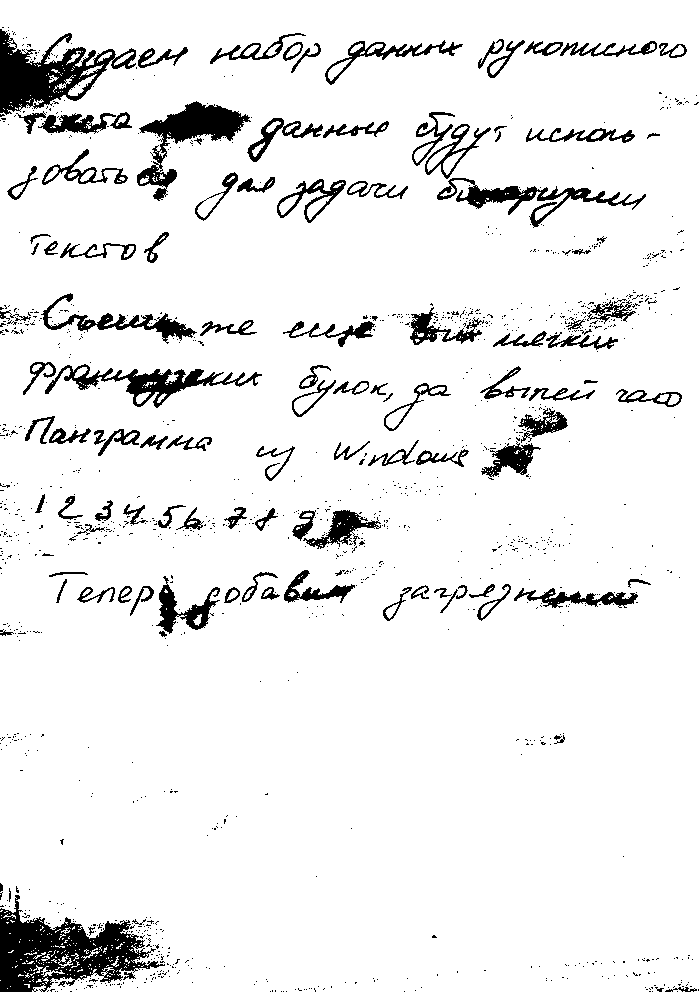 Создаем набор данных рукописного
текста данные будут исполь-
зоваться для задачи бинаризации
текстов
Съешь же ещё этих мягких
французских булок, да выпей чаю
Панграмма из Windows
1 2 3 4 5 6 7 8 9
Теперь добавим загрязнений